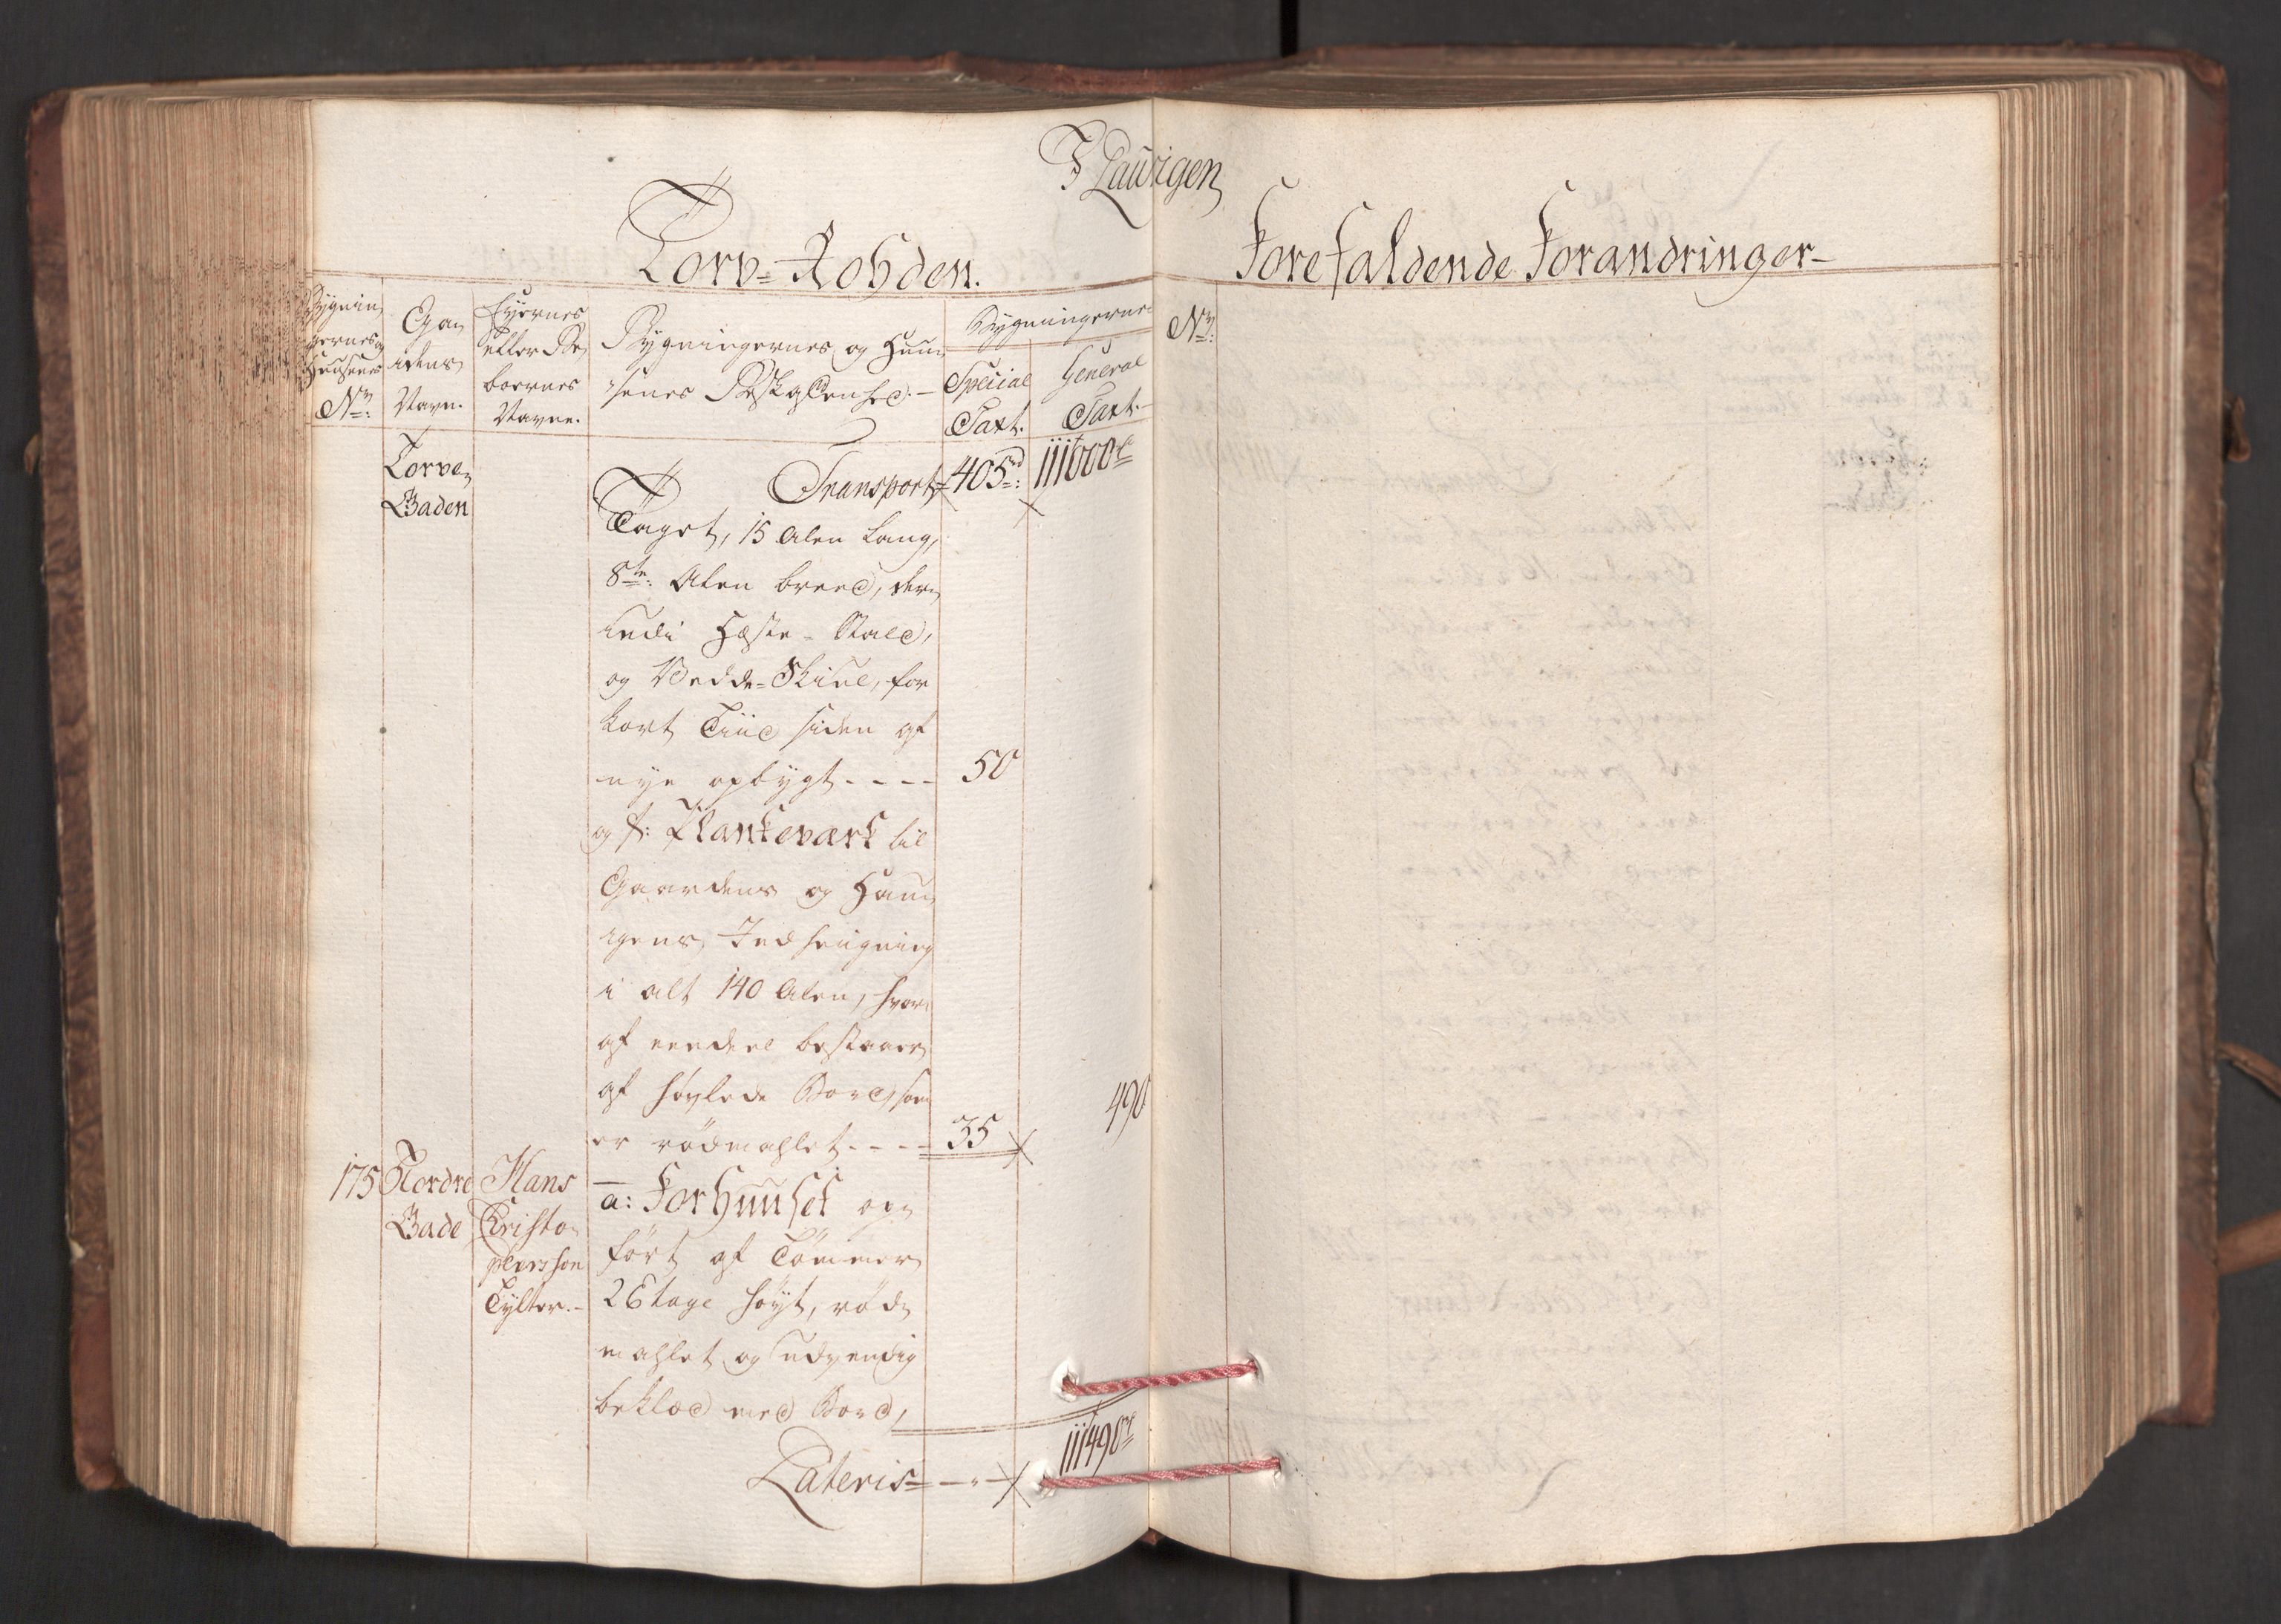 I Laurvigen
Torv=Rohden.
Forefaldende Forandringer-
Bygnin
gernes og
Huusenes
No:
Ga
dens
Navn.
Eyernes
eller Be
boernes
Navne.
Bygningernes og Huu
senes Beskaffenhed. -
Bygningerne
Special
Taxt.
General
Taxt. -
No:
Torve
Gaden
Transport 405rd: 111000rd
Taget, 15 Alen lang,
8te: Alen breed, der
indi Hæste=Stald,
og Vedde=Skiul, for
kort Tiid siden af
nye opbygt - - - - 50
og f: Plankeværk til
Gaardens og Hau
gens Indhægning
i alt 140 Alen, hvor
af eendeel bestaaer
af høvlede Bord, som
er rödmahlet - - - 35
490
175 Nordre
Gade
Hans
Christo
phersson
Tylter. -
a: Forhuuset op
ført af Tömmer
2 Etage høyt, röd
mahlet og udvendig
beklæd med Bord,
Lateris - - - 111490rd